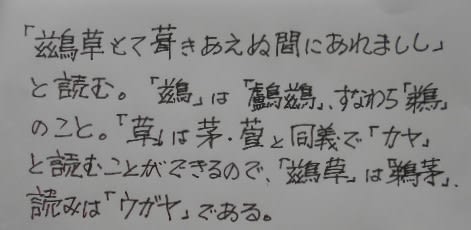 「鷀草とて葺きあえぬ間にあれましし」
と読む。「鷀」は「鸕鷀」、すなわち「鵜」
のこと。「草」は茅・萱と同義で「カヤ」
と読むことができるので、「鷀草」は「鵜茅」、
読みは「ウガヤ」である。